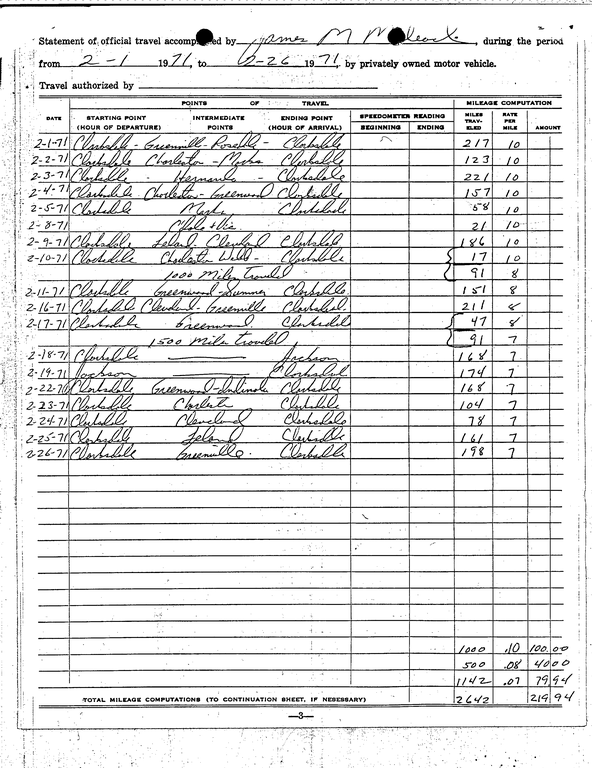 Statement of official travel accomp ed by James M , during the period
from 2-1 1971, to 2-26 1971, by privately owned motor vehicle.
Travel authorized by
POINTS OF TRAVEL MILEAGE COMPUTATION
DATE STARTING POINT (HOUR OF DEPARTURE) INTERMEDIATE POINTS ENDING POINT (HOUR OF ARRIVAL) SPEEDOMETER READING BEGINNING ENDING MILES TRAVELED RATE PER MILE AMOUNT
2-1-71 Clarksdale - Greenville - Rosedale - Clarksdale 217 10
2-2-71 Clarksdale Charleston - Marks Clarksdale 123 10
2-3-71 Clarksdale - Hernando - Clarksdale 221 10
2-4-71 Clarksdale Charleston - Greenwood Clarksdale 157 10
2-5-71 Clarksdale Marks Clarksdale 58 10
2-8-71 21 10
2-9-71 Clarksdale Leland - Cleveland Clarksdale 186 10
2-10-71 Clarksdale Charleston Webb - Clarksdale 17 10
1000 Miles traveled 91 8
2-11-71 Clarksdale Greenwood - Sumner Clarksdale 151 8
2-16-71 Clarksdale Cleveland - Greenville Clarksdale 211 8
2-17-71 Clarksdale Greenwood Clarksdale 47 8
1500 Miles traveled 91 7
2-18-71 Clarksdale Jackson 168 7
2-19-71 Jackson Clarksdale 174 7
2-22-71 Clarksdale Greenwood - Indianola Clarksdale 168 7
2-23-71 Clarksdale Charleston Clarksdale 104 7
2-24-71 Clarksdale Cleveland Clarksdale 78 7
2-25-71 Clarksdale Leland Clarksdale 161 7
2-26-71 Clarksdale Greenville Clarksdale 198 7
1000 .10 100.00
500 .08 4000
1142 .07 79.94
TOTAL MILEAGE COMPUTATIONS (TO CONTINUATION SHEET, IF NESESSARY) 2642 219.94
—3—